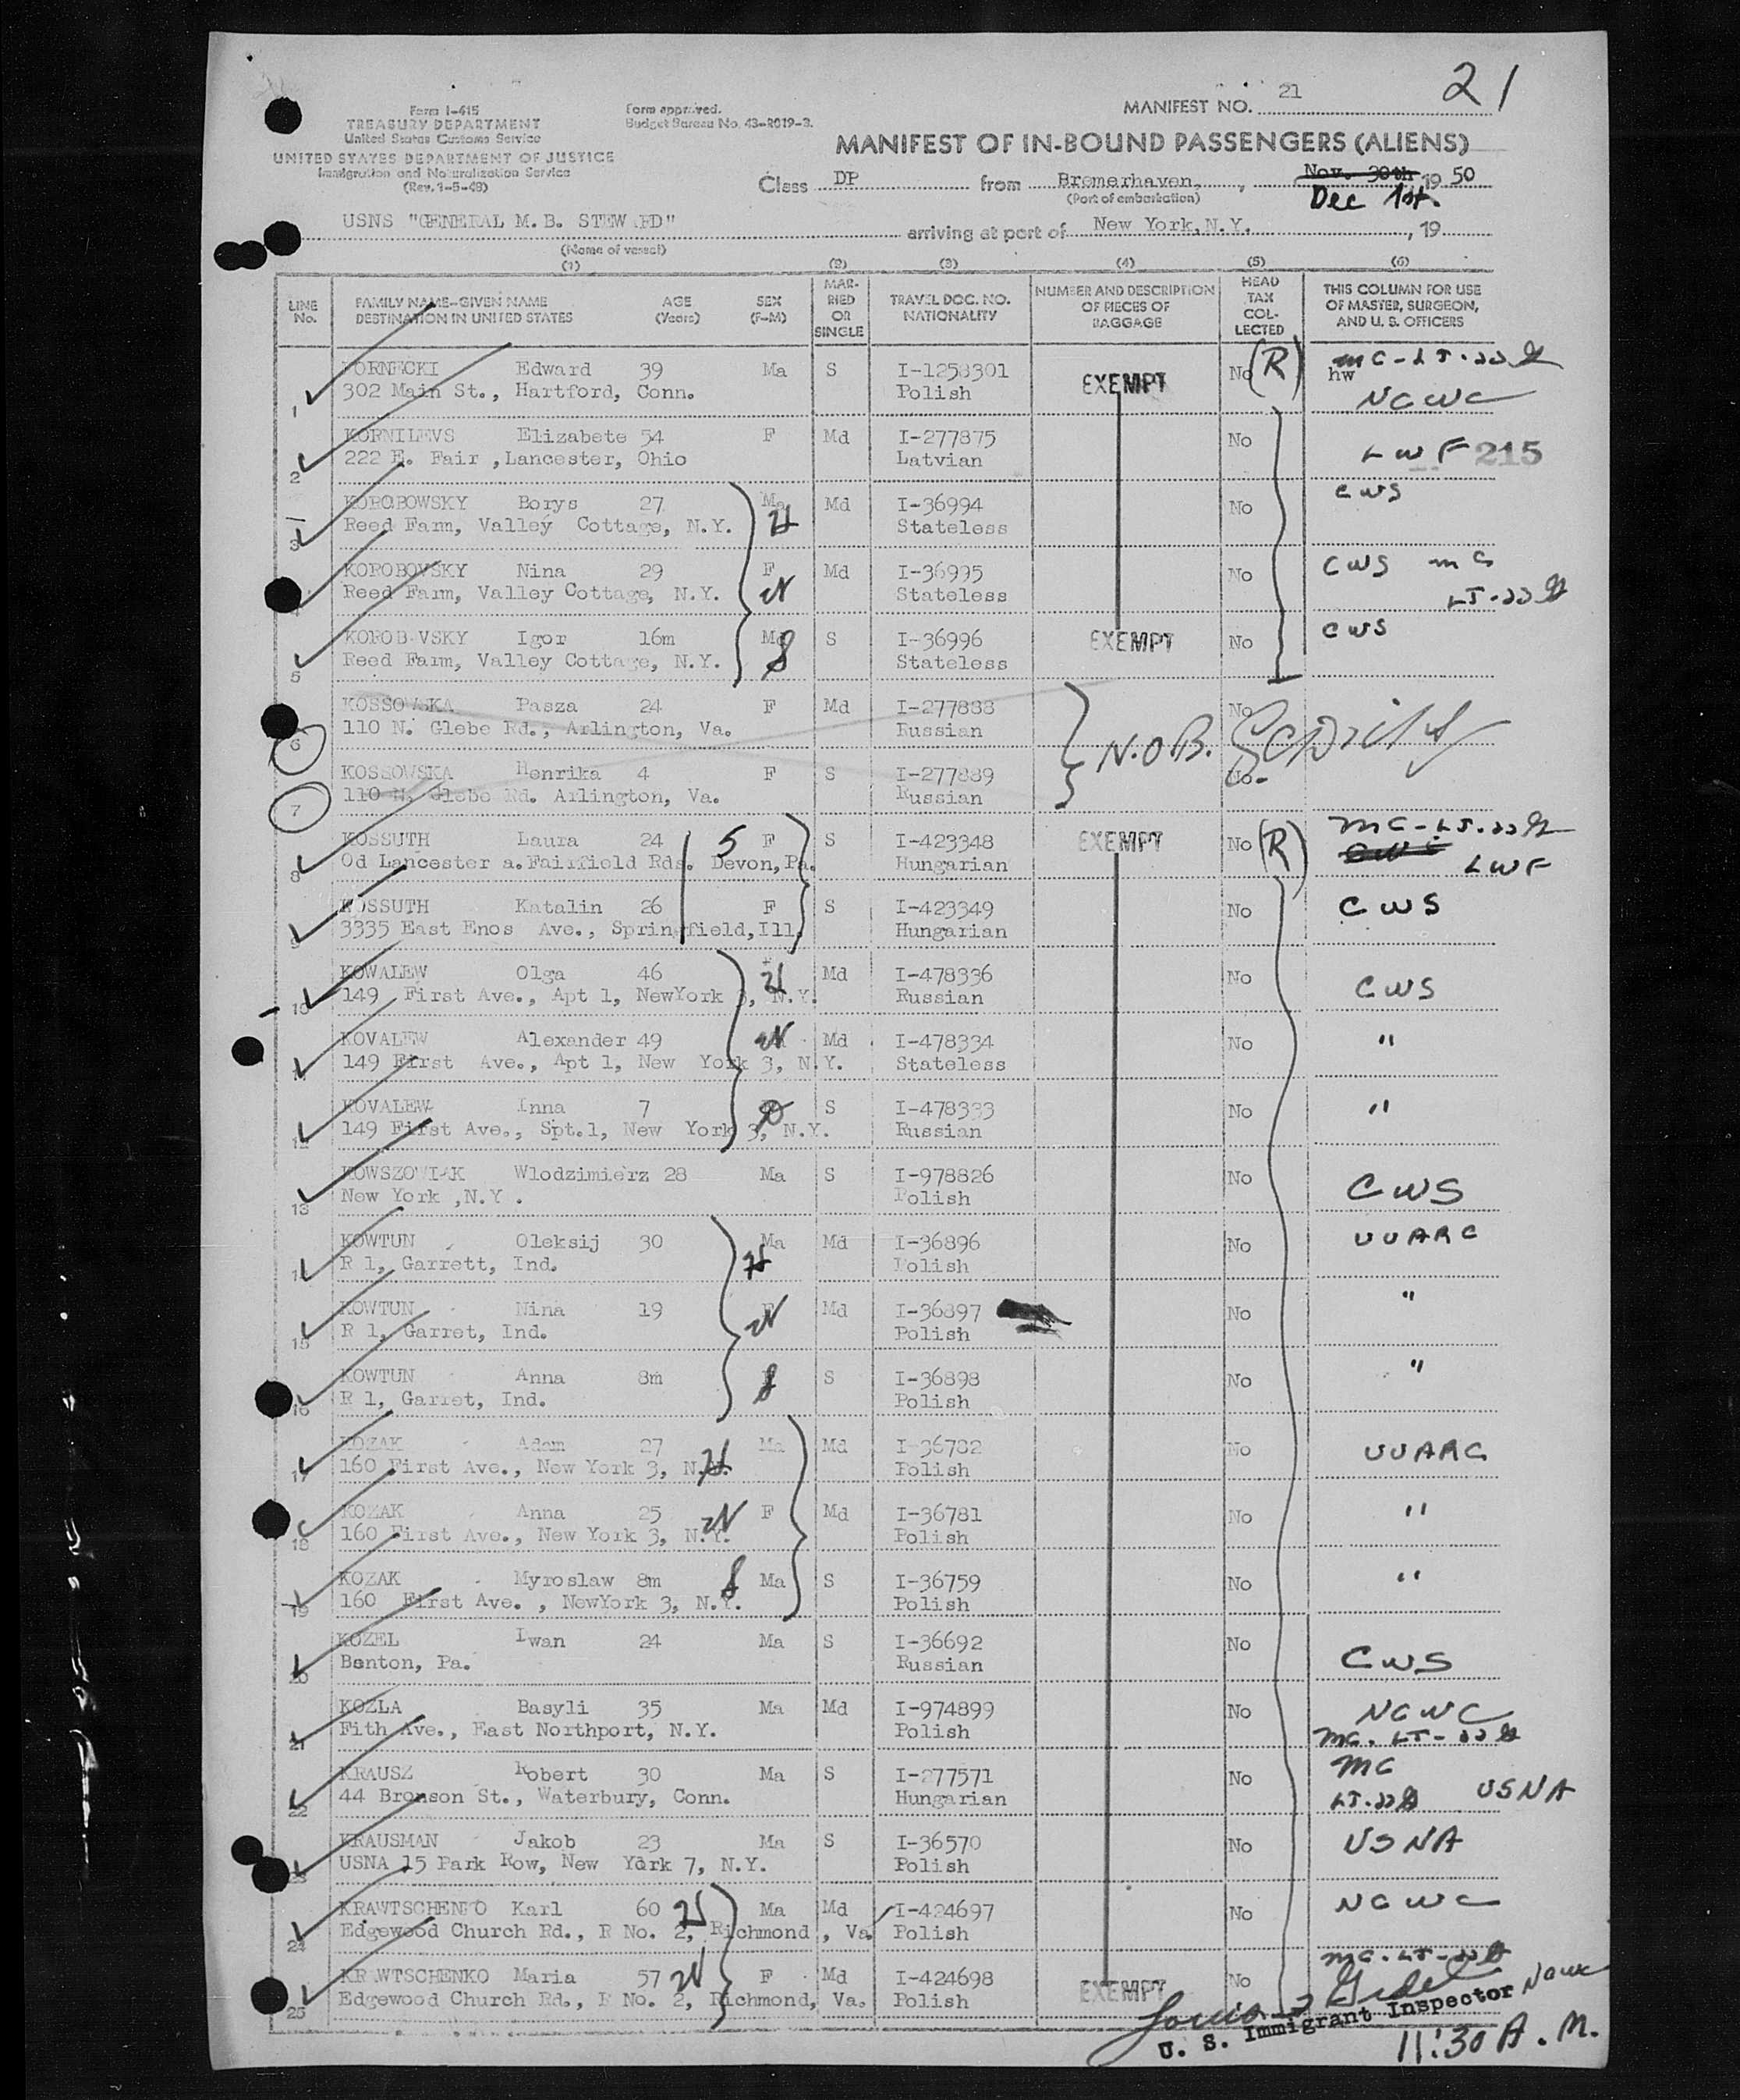 21
MANIFEST NO. 21
Form I-415
TREASURY DEPARTMENT
United States Customs Service
UNITED STATES DEPARTMENT OF JUSTICE
Immigration and Naturalization Service
(Rev. 1-5-49)
Form approved.
Budget Bureau No. 43-R019-3.
MANIFEST OF IN-BOUND PASSENGERS (ALIENS)
Class DP from Bremerhaven, , Nov. 30th 19 50
(Port of embarkation) Dec 1st.
USNS "GENERAL M. B. STEWARD" arriving at port of New York, N.Y. , 19
(Name of vessel)
(1) (2) (3) (4) (5) (6)
LINE No. FAMILY NAME-GIVEN NAME DESTINATION IN UNITED STATES AGE (Years) SEX (F-M) MARRIED OR SINGLE TRAVEL DOC. NO. NATIONALITY NUMBER AND DESCRIPTION OF PIECES OF BAGGAGE HEAD TAX COLLECTED THIS COLUMN FOR USE OF MASTER, SURGEON, AND U. S. OFFICERS
1 KORNECKI Edward 39 Ma S I-1258301 EXEMPT No (R) hw
302 Main St., Hartford, Conn. Polish NCWC
2 KORNILEVS Elizabete 54 F Md I-277875 No LWF 215
222 E. Fair ,Lancester, Ohio Latvian
3 KOROBOWSKY Borys 27 Ma Md I-36994 No CWS
Reed Farm, Valley Cottage, N.Y. H Stateless
4 KOROBOVSKY Nina 29 F Md I-36995 No CWS MC
Reed Farm, Valley Cottage, N.Y. W Stateless
5 KOROBOVSKY Igor 16m Ma S I-36996 EXEMPT No CWS
Reed Farm, Valley Cottage, N.Y. Stateless
6 KOSSOWSKA Pasza 24 F Md I-277888 No
110 N. Glebe Rd., Arlington, Va. Russian N.O.B. Security
7 KOSSOWSKA Henrika 4 F S I-277889 No
110 N. Glebe Rd. Arlington, Va. Russian
8 KOSSUTH Laura 24 5 F S I-423348 EXEMPT No (R)
Od Lancester a.Fairfield Rds. Devon,Pa. Hungarian CWS LWF
9 KOSSUTH Katalin 26 F S I-423349 No CWS
3335 East Enos Ave., Springfield,Ill. Hungarian
10 KOWALEW Olga 46 Md I-478336 No CWS
149 First Ave., Apt 1, NewYork 3, N.Y. Russian
11 KOVALEW Alexander 49 Md I-478334 No "
149 First Ave., Apt 1, New York 3, N.Y. Stateless
12 KOVALEW Inna 7 S I-478333 No "
149 First Ave., Spt.1, New York 3, N.Y. Russian
13 KOWSZOWIAK Wlodzimierz 28 Ma S I-978826 No CWS
New York ,N.Y . Polish
14 KOWTUN Oleksij 30 Ma Md I-36896 No UUARC
R 1, Garrett, Ind. H Polish
15 KOWTUN Nina 19 F Md I-36897 No "
R 1, Garret, Ind. W Polish
16 KOWTUN Anna 8m S I-36898 No "
R 1, Garret, Ind. Polish
17 KOZAK Adam 27 Ma Md I-36782 No UUARC
160 First Ave., New York 3, N.Y. H Polish
18 KOZAK Anna 25 W F Md I-36781 No "
160 First Ave., New York 3, N.Y. Polish
19 KOZAK Myroslaw 8m Ma S I-36759 No "
160 First Ave. , NewYork 3, N.Y. Polish
20 KOZEL Iwan 24 Ma S I-36692 No CWS
Benton, Pa. Russian
21 KOZLA Basyli 35 Ma Md I-974899 No NCWC
Fith Ave., East Northport, N.Y. Polish
22 KRAUSZ Robert 30 Ma S I-277571 No MC
44 Bronson St., Waterbury, Conn. Hungarian USNA
23 KRAUSMAN Jakob 23 Ma S I-36570 No USNA
USNA 15 Park Row, New York 7, N.Y. Polish
24 KRAWTSCHENKO Karl 60 H Ma Md I-424697 No NCWC
Edgewood Church Rd., R No. 2, Richmond , Va. Polish
25 KRAWTSCHENKO Maria 57 W F Md I-424698 EXEMPT No
Edgewood Church Rd., R No. 2, Richmond, Va. Polish
U. S. Immigrant Inspector
11:30 A.M.